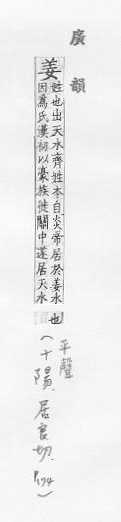 廣韻
姜
姓也出天水齊姓本自炎帝居於姜水
因為氏漢初以豪族徙關中遂居天水
也
平聲
(十陽.居良切.P.174)